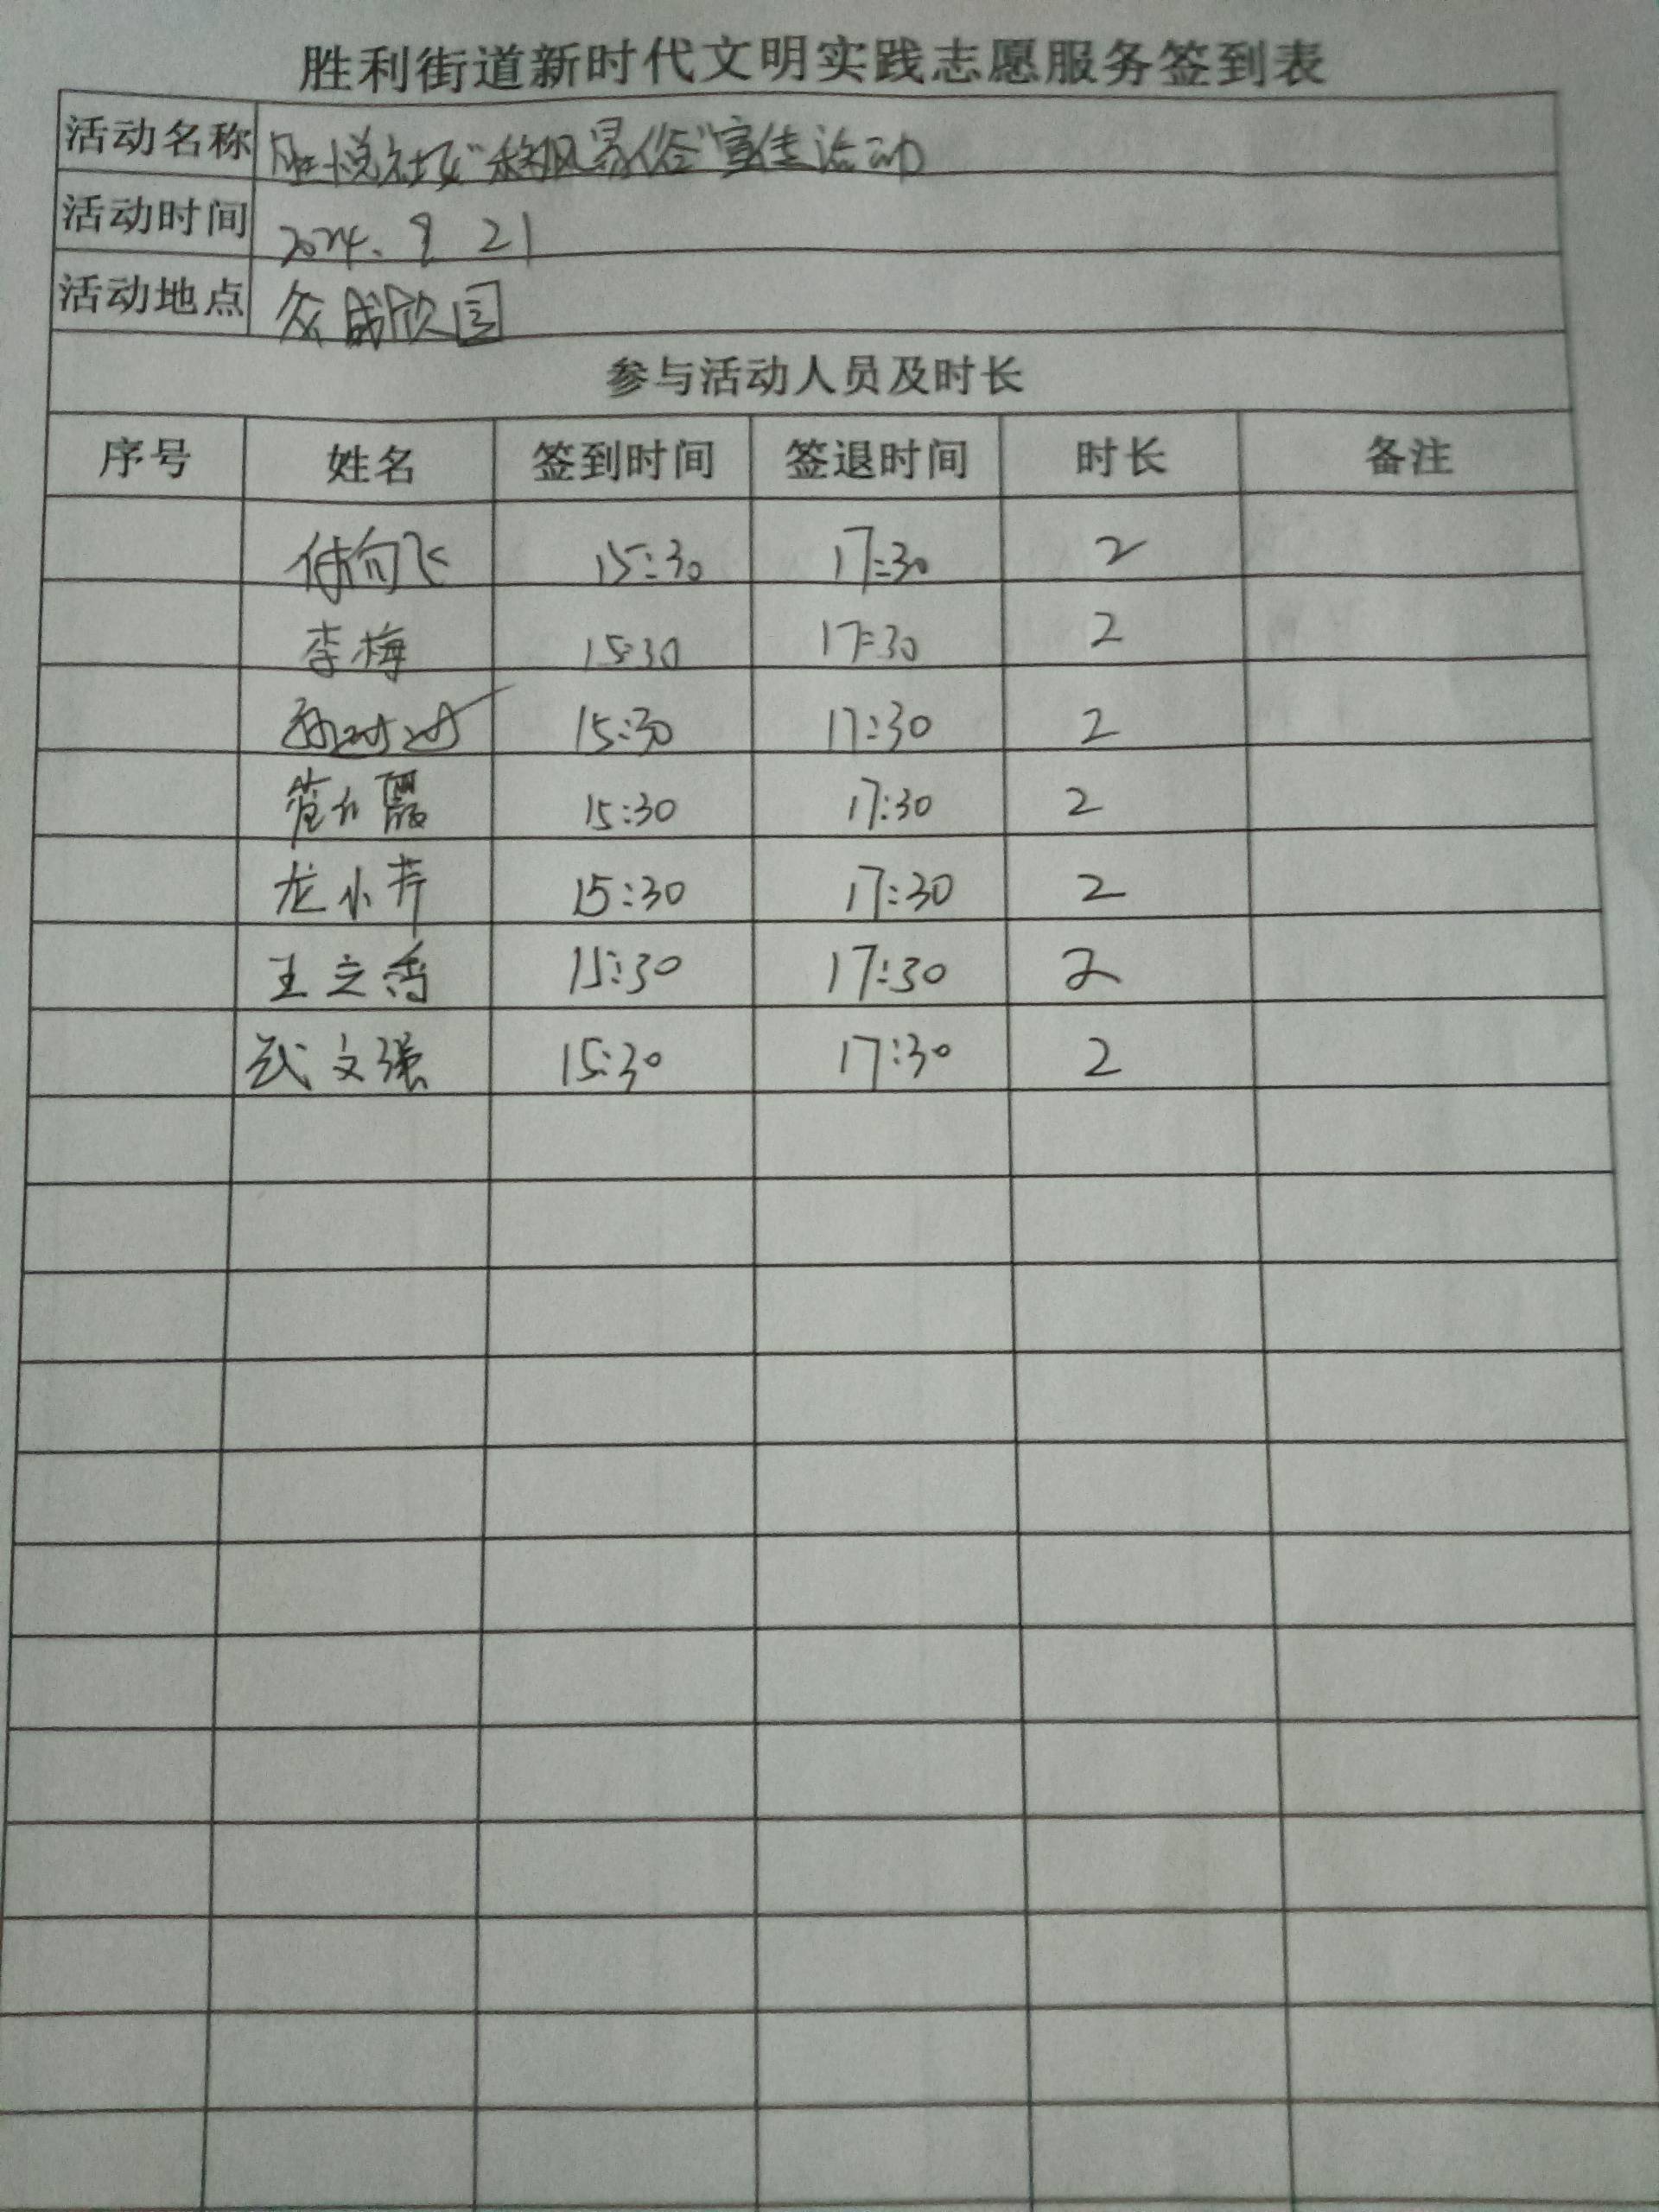 胜利街道新时代文明实践志愿服务签到表
活动名称 胜悦社区"移风易俗"宣传活动
活动时间 2024.9.21
活动地点 众成欣园
参与活动人员及时长
序号 姓名 签到时间 签退时间 时长 备注
付向飞 15:30 17:30 2
李梅 15:30 17:30 2
15:30 17:30 2
15:30 17:30 2
龙小芹 15:30 17:30 2
王立香 15:30 17:30 2
武文强 15:30 17:30 2